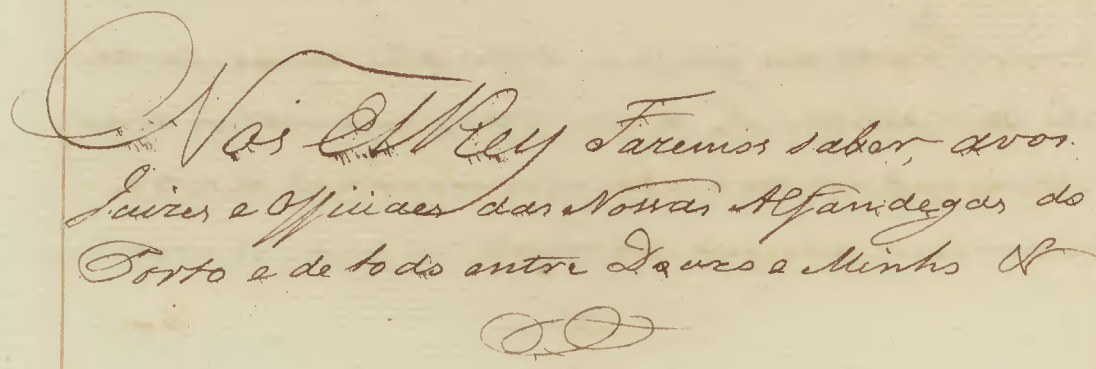 Nos ElRey Faremos saber, avos
Juizes e Officiaes das Nossas Alfandegas do
Porto e de todo antre Douro e Minho &